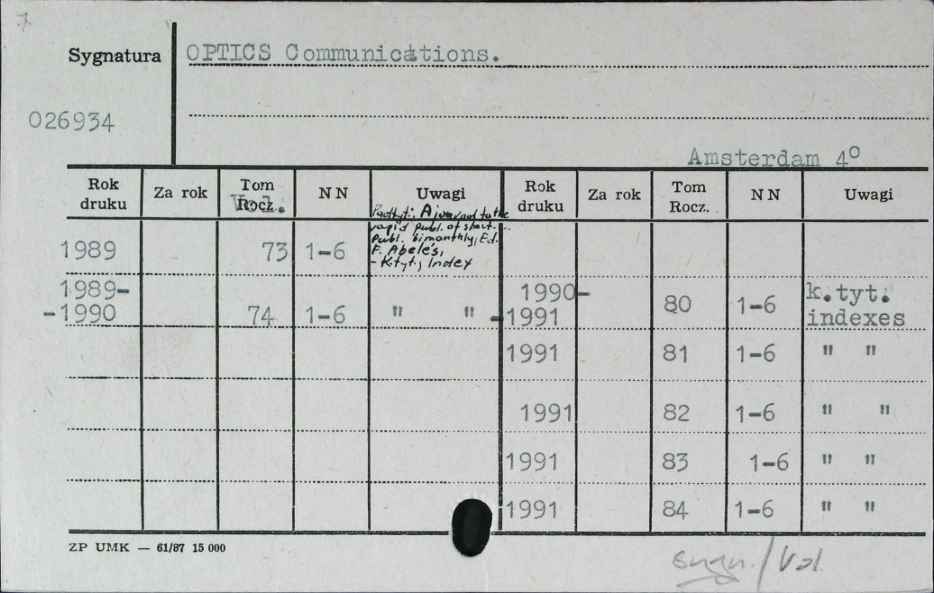 7
Sygnatura OPTICS Communications.
026934
Amsterdam 4°
Rok druku Za rok Tom Rocz. Vol. N N Uwagi Rok druku Za rok Tom Rocz. N N Uwagi
Podtyt.: A journal to the
rapid publ. of short...
publ. bimonthly, Ed.
F. Abelès,
- K.tyt., Index
1989 73 1-6
1989-
-1990 74 1-6 " " 1990-
-1991 80 1-6 k.tyt.
indexes
1991 81 1-6 " "
1991 82 1-6 " "
1991 83 1-6 " "
1991 84 1-6 " "
ZP UMK — 61/87 15 000
sygn./Vol.